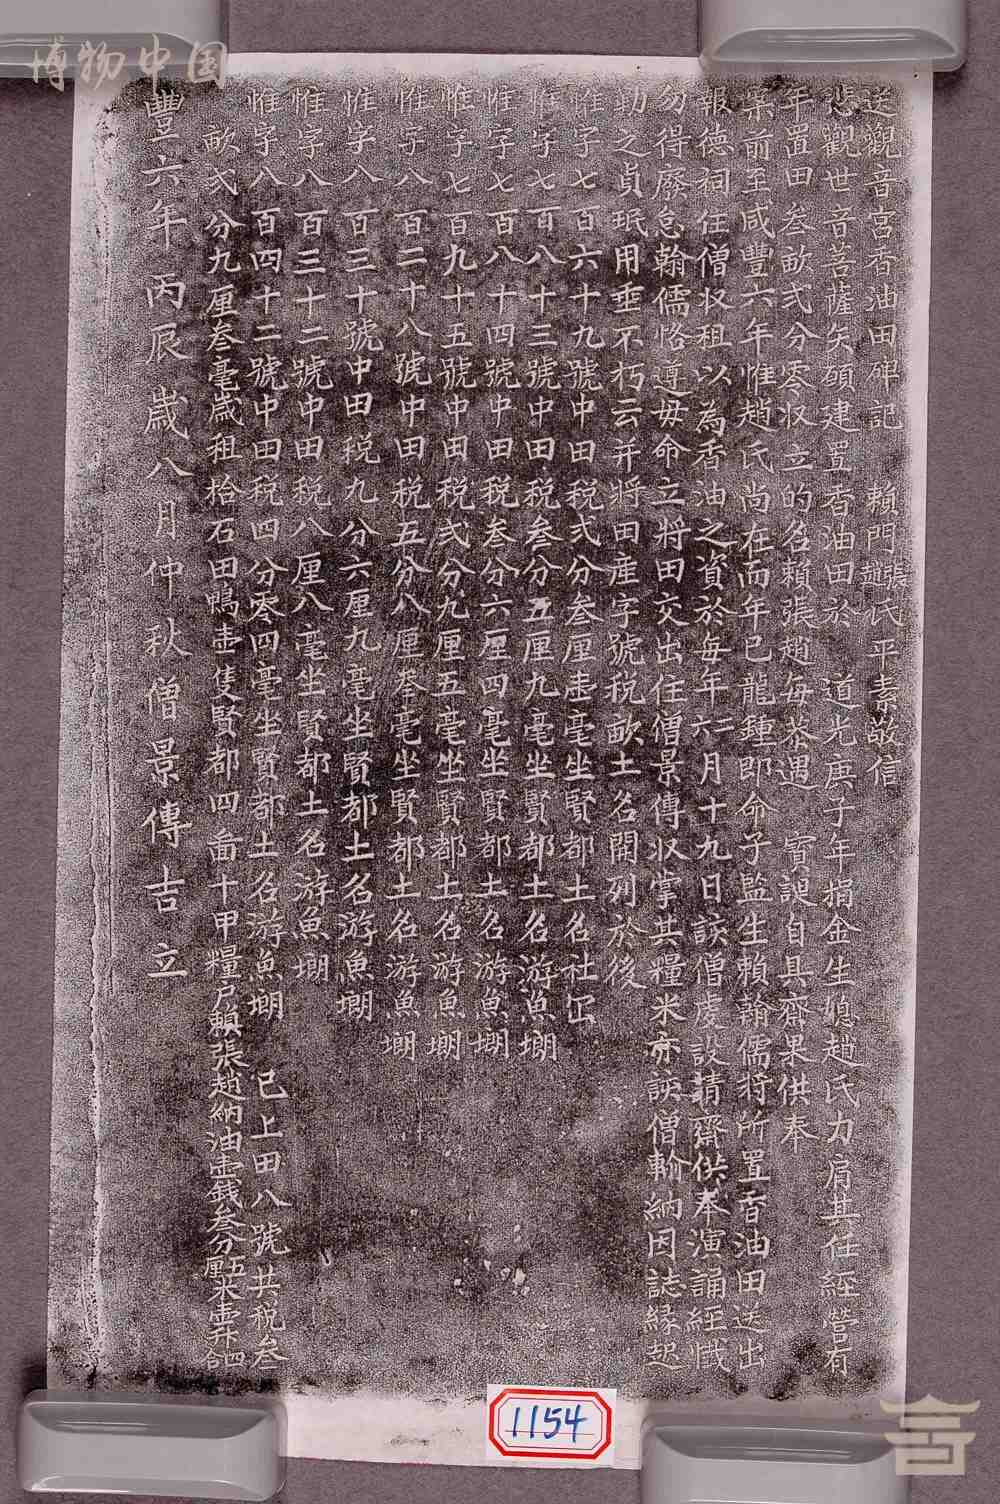 博物中国
送觀音宮香油田碑記 賴門張趙氏平素敬信
觀世音菩薩矢願建置香油田於 道光庚子年捐金生媳趙氏力肩其任經營有
年置田叁畝弍分零収立的名賴張趙每恭遇 寳誕自具齋果供奉
案前至咸豐六年惟趙氏尚在而年已龍鍾即命子監生賴翰儒將所置香油田送出
報德祠住僧収租以為香油之資於每年二六月十九日該僧虔設清齋供奉演誦經懺
勿得廢怠翰儒恪遵毋命立將田交出住僧景傳収掌其糧米亦該僧輸納因誌緣起
勒之貞珉用垂不朽云并將田産字號税畝土名開列於後
惟字七百六十九號中田税弍分叁厘壹毫坐賢都土名社岱
惟字七百八十三號中田税叁分五厘九毫坐賢都土名游魚塴
惟字七百八十四號中田税叁分六厘四毫坐賢都土名游魚塴
惟字七百九十五號中田税弍分九厘五毫坐賢都土名游魚塴
惟字八百二十八號中田税五分八厘零毫坐賢都土名游魚塴
惟字八百三十號中田税九分六厘九毫坐賢都土名游魚塴
惟字八百三十二號中田税八厘八毫坐賢都土名游魚塴
惟字八百四十二號中田税四分零四毫坐賢都土名游魚塴 已上田八號共税叁
畝弍分九厘叁毫歲租拾石田鴨壹隻賢都四啚十甲糧户賴張趙納油壹錢叁分五厘米壹升四合
豐六年丙辰歲八月仲秋 僧景傳吉立
1154